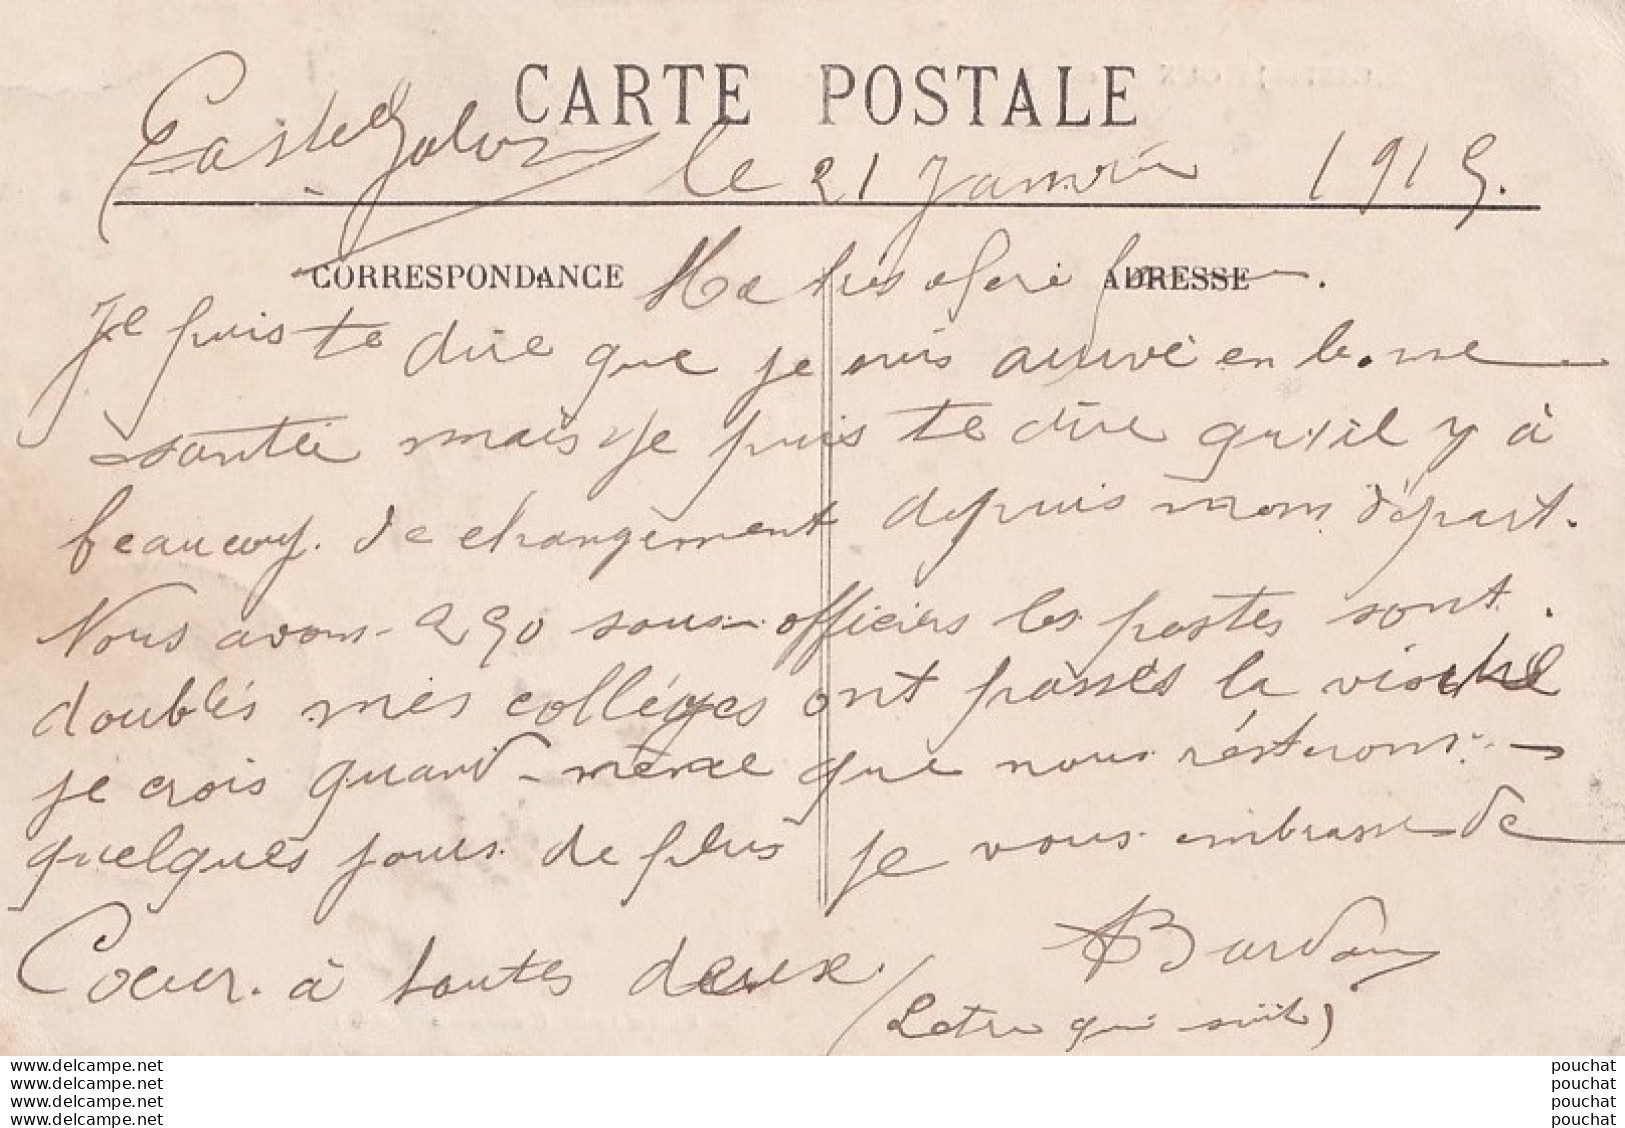 CARTE POSTALE
Casteljaloux le 21 Janvier 1915.
CORRESPONDANCE
ADRESSE
Ma très chéri
Je puis te dire que je suis arrivé en bonne
santéé mais je puis te dire qu'il y à
beaucoup de changement depuis mon départ.
Nous avons 290 sous-officiers les postes sont
doublés mes collèges ont passés la visite
je crois quand-même que nous résterons
quelques jours de plus je vous embrasse de
Coeur à toutes deux.
Bardou
(Letre qui suit)
www.delcampe.net
www.delcampe.net
www.delcampe.net
www.delcampe.net
pouchat
pouchat
pouchat
pouchat